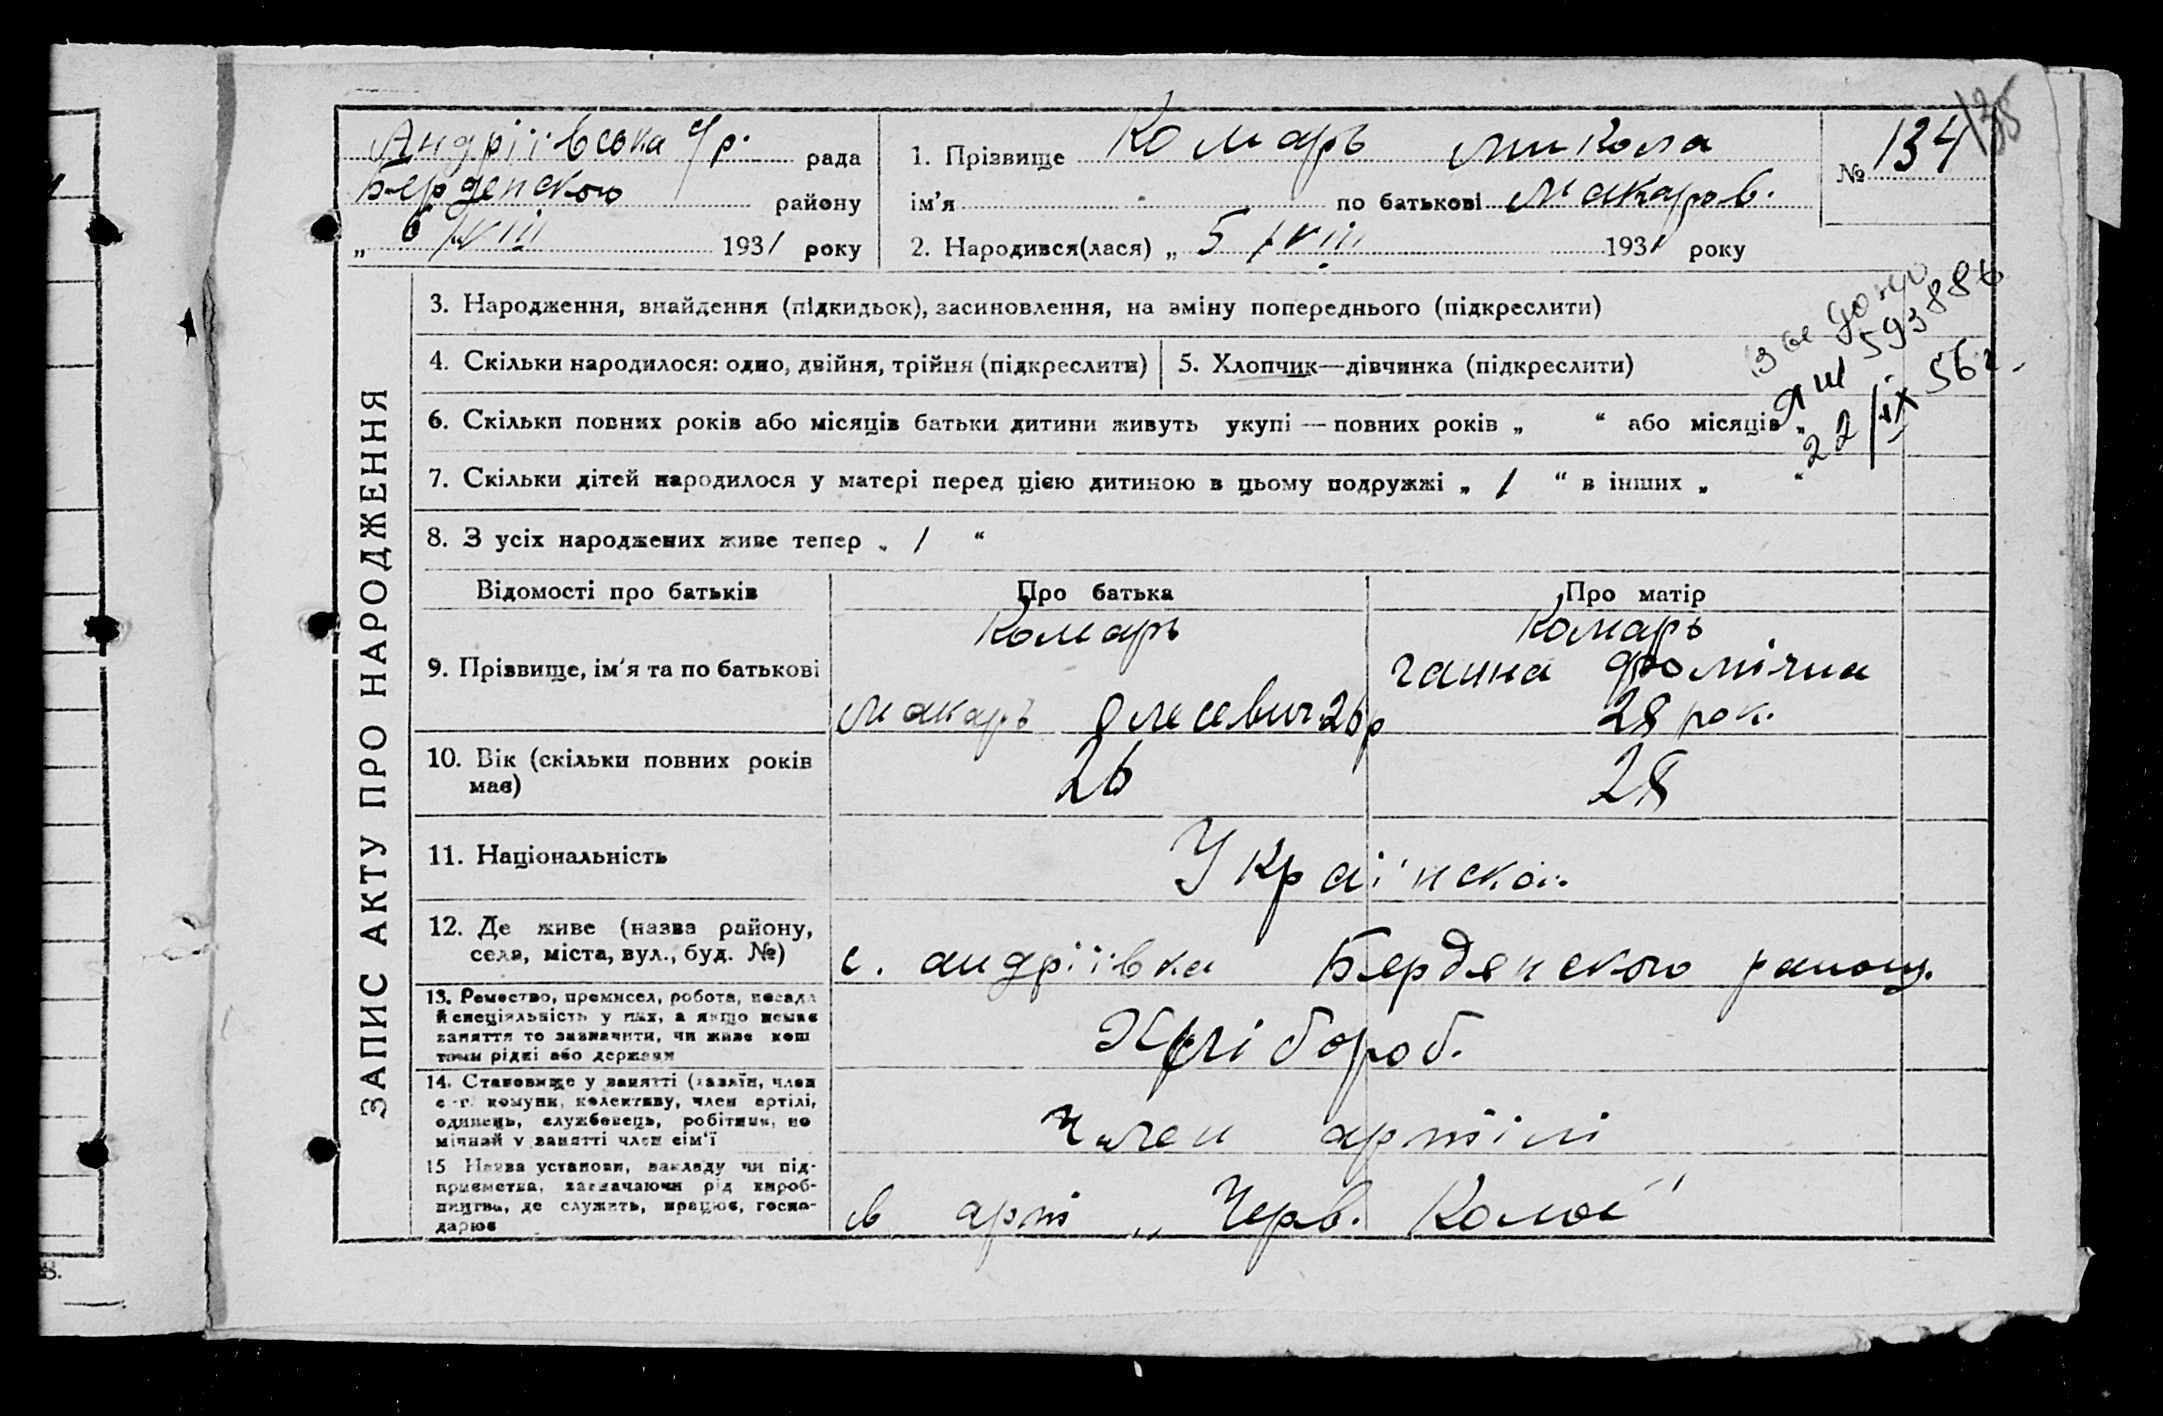 135
Андріївська с/р. рада
Берденскою району
„ 6/VIII 1931 року
1. Прізвище Комарь Микола
ім’я по батькові Макаров.
2. Народився(лася) „ 5/VIII 1931 року
№ 134
ЗАПИС АКТУ ПРО НАРОДЖЕННЯ
3. Народження, знайдення (підкидьок), засиновлення, на зміну попереднього (підкреслити)
4. Скільки народилося: одно, двійня, трійня (підкреслити)
5. Хлопчик—дівчинка (підкреслити)
593886
22/IX 56г.
6. Скільки повних років або місяців батьки дитини живуть укупі — повних років „ “ або місяців „
7. Скільки дітей народилося у матері перед цією дитиною в цьому подружжі „ 1 “ в інших „ “
8. З усіх народжених живе тепер „ 1 “
Відомості про батьків
Про батька
Про матір
9. Прізвище, ім’я та по батькові
Комарь
Макарь Олесевич 26р
Комарь
Ганна Фомічна
28 рок.
10. Вік (скільки повних років має)
26
28
11. Національність
Українскоі.
12. Де живе (назва району, села, міста, вул., буд. №)
с. Андріївка Бердянского району.
13. Ремество, промисел, робота, посада й спеціяльність у них, а якщо немає заняття то зазначити, чи живе кош тами рідні або держави
Хлібороб.
14. Становище у занятті (хазяїн, член с.-г. комуни, колективу, член артілі, одинець, службовець, робітник, по мічний у занятті член сім’ї
Член артілі
15 Назва установи, закладу чи під- приємства, зазначаючи рід вироб- ництва, де служить, працює, госпо- дарює
в арт „Черв. Колос"